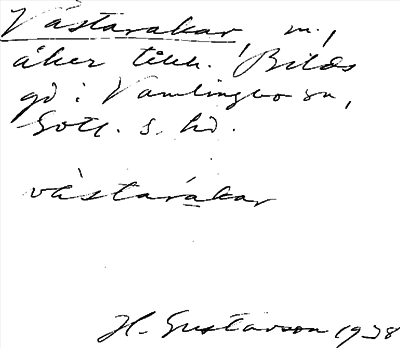 Västaråkar, m.,
åker tillh. Bilds
gd i Vamlingbo sn,
Gotl. s. hd.
västaråkar
H. Gustavson 1938